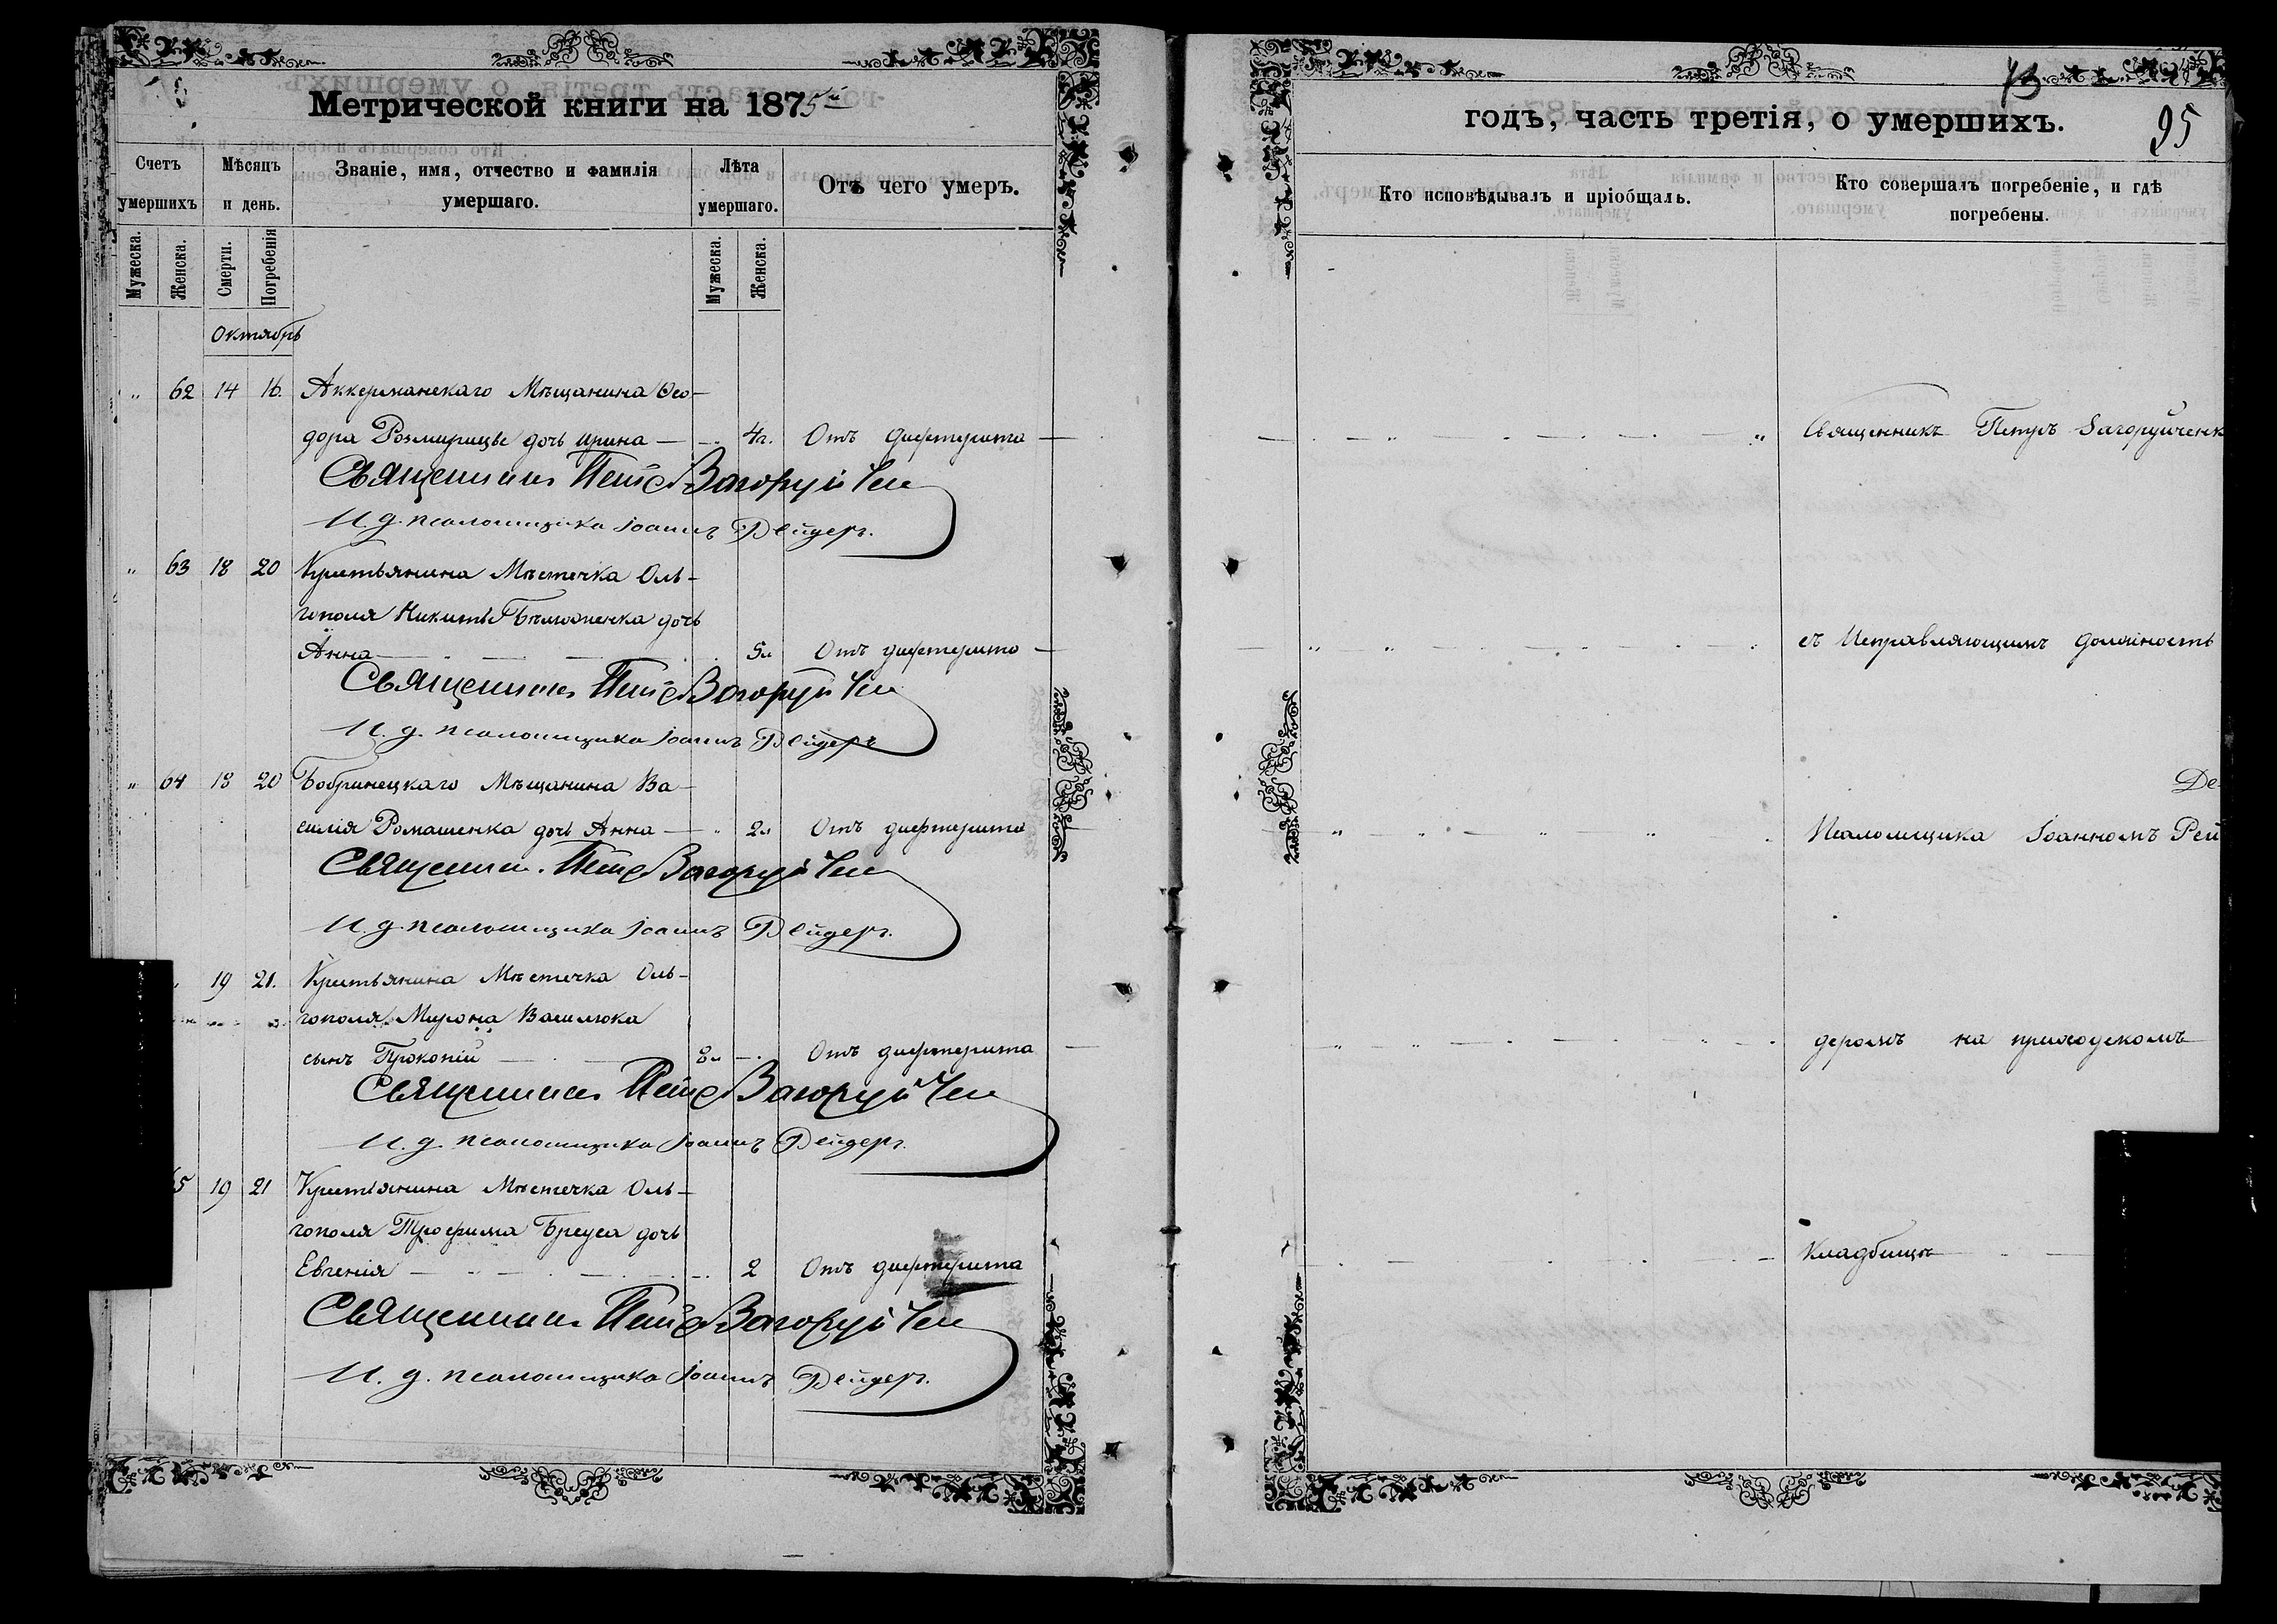 Метрической книги на 1875й
Счетъ умершихъ
Мѣсяцъ и день.
Званіе, имя, отчество и фамилія умершаго.
Лѣта умершаго.
Отъ чего умеръ.
Мужеска.
Женска.
Смерти.
Погребенія
Мужеска.
Женска.
Октябрь
„ 62 14 16. Аккерманскаго Мѣщанина Ѳео-
дора дочь Ирина — 4 г. Отъ дифтерита
Священникъ Петръ Загоруйчен
И. д. псаломщика Іоаннъ Рейдеръ.
„ 63 18 20 Крестьянина Мѣстечка Оль-
гополя Никиты дочь
Анна 5 Отъ дифтерита
Священникъ Петръ Загоруйчен
И. д. псаломщика Іоаннъ Рейдеръ
„ 64 18 20 Бобринецкаго Мѣщанина Ва-
силія Ромашенка дочь Анна — „ 2 Отъ дифтерита
Священникъ Петръ Загоруйчен
И. д. псаломщика Іоаннъ Рейдеръ.
19 21. Крестьянина Мѣстечка Оль-
гополя Мирона Василюка
сынъ Прокопій 8 Отъ дифтерита
Священникъ Петръ Загоруйчен
И. д. псаломщика Іоаннъ Рейдеръ.
5 19 21 Крестьянина Мѣстечка Оль-
гополя Трофима Бреуса дочь
Евгенія 2 Отъ дифтерита
Священникъ Петръ Загоруйчен
И. д. псаломщика Іоаннъ Рейдеръ.
годъ, часть третія, о умершихъ.
95
Кто исповѣдывалъ и пріобщалъ.
Кто совершалъ погребеніе, и гдѣ погребены.
Священникъ Петръ Загоруйченк
съ Исправляющимъ должность
Псаломщика Іоанномъ Рей
деромъ на приходскомъ
Кладбищѣ